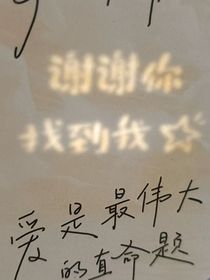 谢谢你
找到我☆
爱是最伟大
的真命题